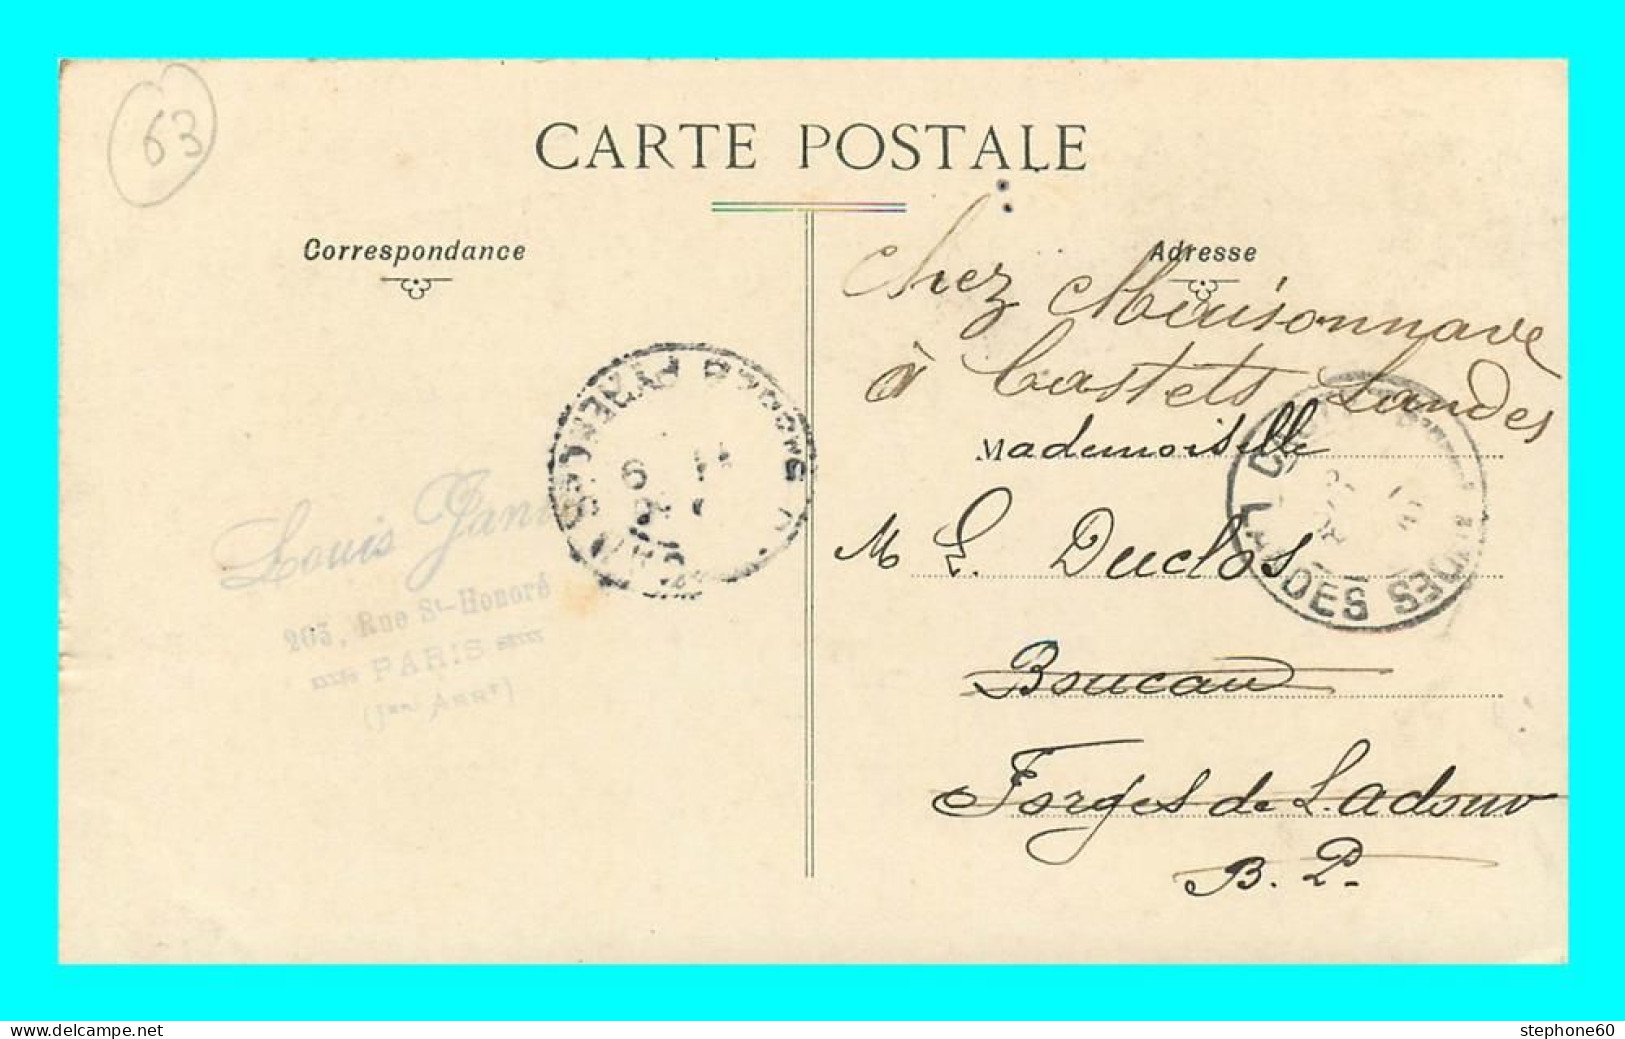 63
CARTE POSTALE
Correspondance
Adresse
chez Maisonnave
à Castets Landes
Mademoiselle
M E. Duclos
Boucau
Forges de L'adour
B. P.
Louis
205, Rue St-Honoré
PARIS
(1er Arrt)
PYRENEES
LANDES
www.delcampe.net
stephone60